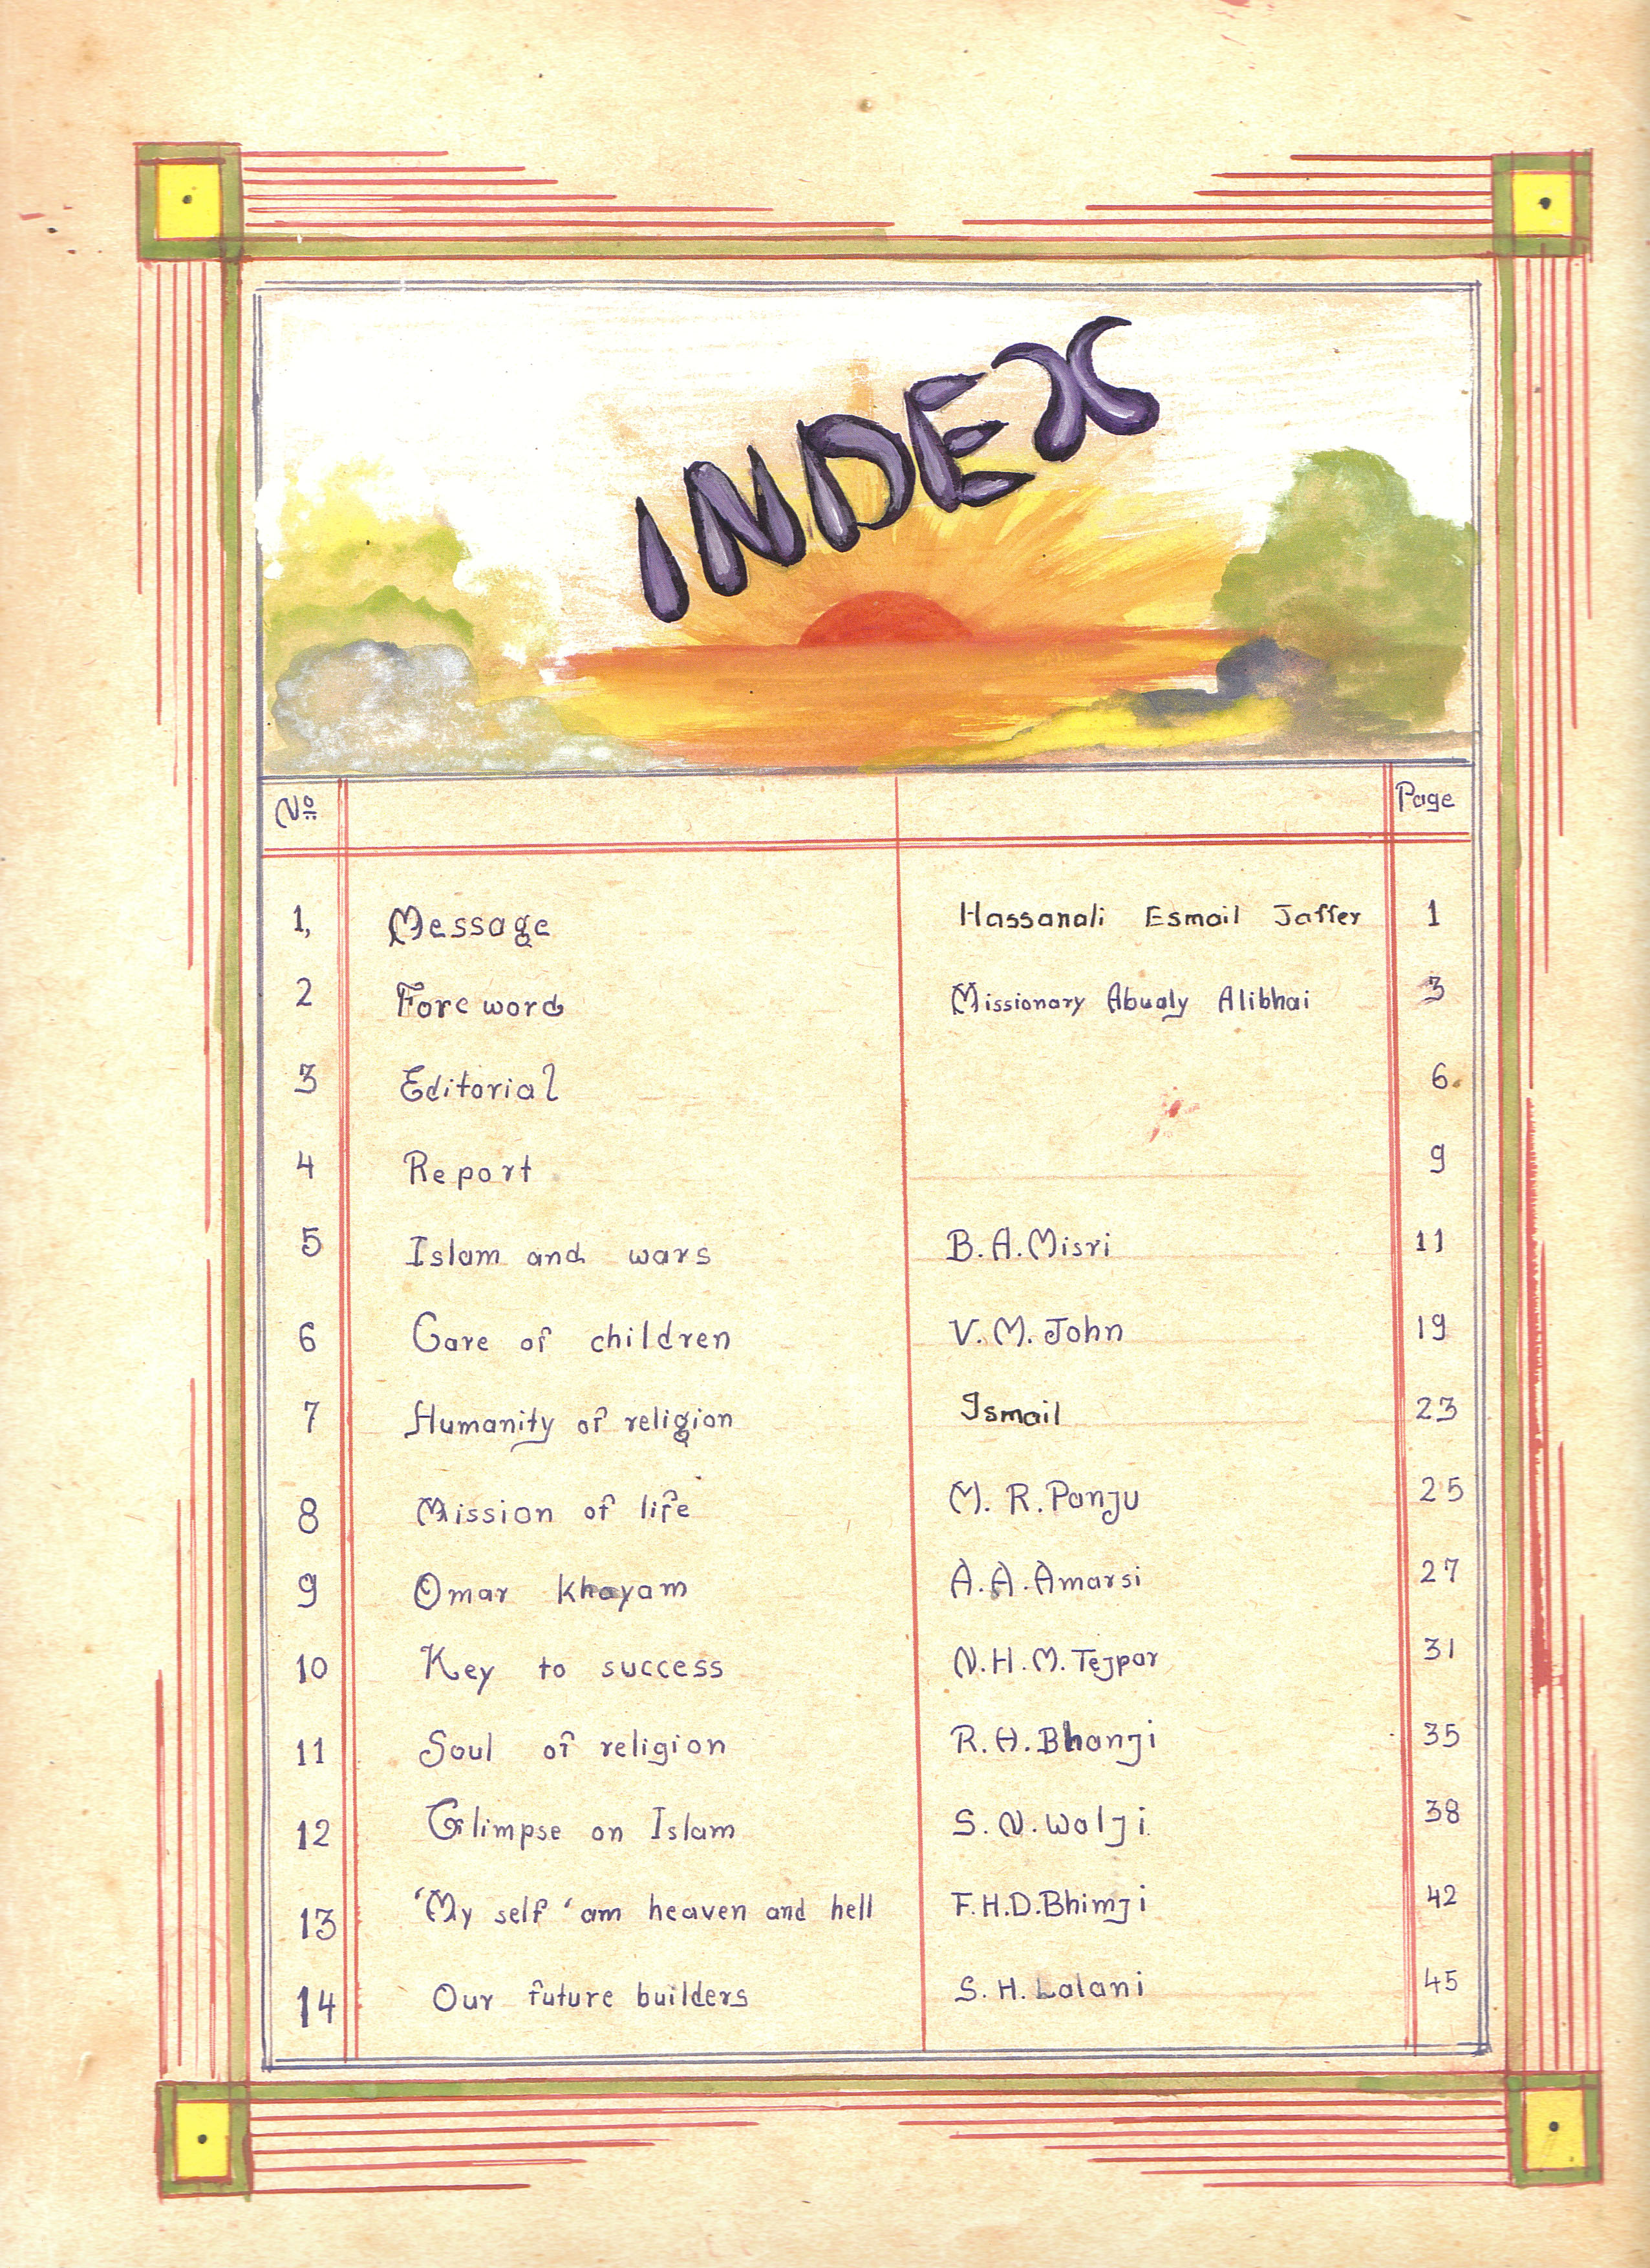 INDEX
No Page
1, Message Hassanali Esmail Jaffer 1
2 Foreword Missionary Abualy Alibhai 3
3 Editorial 6.
4 Report 9
5 Islam and wars B.A.Misri 11
6 Care of children V.M.John 19
7 Humanity of religion Ismail 23
8 Mission of life M.R.Panju 25
9 Omar Khayam A.A.Amarsi 27
10 Key to success N.H.M.Tejpar 31
11 Soul of religion R.H.Bhanji 35
12 Glimpse on Islam S.N.Walji 38
13 'My self 'am heaven and hell F.H.D.Bhimji 42
14 Our future builders S.H.Lalani 45